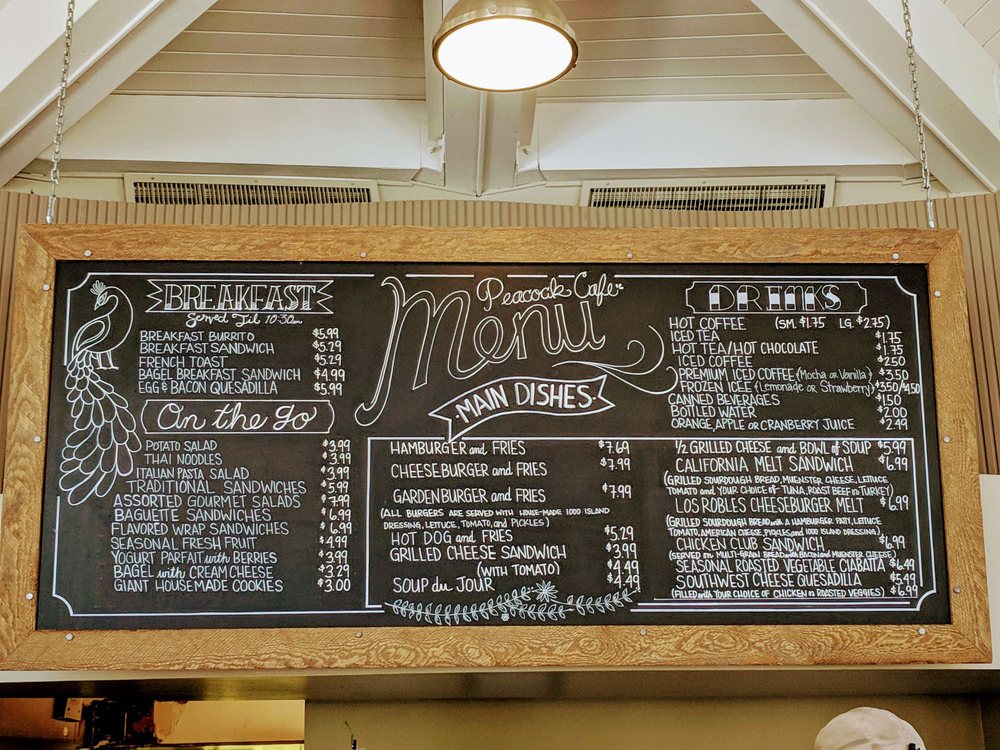 BREAKFAST
Served Til 10:30am
BREAKFAST BURRITO $5.99
BREAKFAST SANDWICH $5.29
FRENCH TOAST $5.29
BAGEL BREAKFAST SANDWICH $4.99
EGG & BACON QUESADILLA $5.99
On the Go
POTATO SALAD $3.99
THAI NOODLES $3.99
ITALIAN PASTA SALAD $3.99
TRADITIONAL SANDWICHES $5.99
ASSORTED GOURMET SALADS $7.99
BAGUETTE SANDWICHES $6.99
FLAVORED WRAP SANDWICHES $6.99
SEASONAL FRESH FRUIT $4.99
YOGURT PARFAIT with BERRIES $3.99
BAGEL with CREAM CHEESE $3.29
GIANT HOUSEMADE COOKIES $3.00
Peacock Cafe
Menu
MAIN DISHES
HAMBURGER and FRIES $7.69
CHEESEBURGER and FRIES $7.99
GARDENBURGER and FRIES $7.99
(ALL BURGERS ARE SERVED with HOUSE-MADE 1000 ISLAND
DRESSING, LETTUCE, TOMATO, and PICKLES)
HOT DOG and FRIES $5.29
GRILLED CHEESE SANDWICH $3.99
(WITH TOMATO) $4.49
SOUP du JOUR $4.49
DRINKS
HOT COFFEE (SM. $1.75 LG. $2.75)
ICED TEA $1.75
HOT TEA/HOT CHOCOLATE $1.75
ICED COFFEE $2.50
PREMIUM ICED COFFEE (Mocha or Vanilla) $3.50
FROZEN ICEE (Lemonade or Strawberry) $3.50/4.50
CANNED BEVERAGES $1.50
BOTTLED WATER $2.00
ORANGE, APPLE or CRANBERRY JUICE $2.49
1/2 GRILLED CHEESE and BOWL of SOUP $5.99
CALIFORNIA MELT SANDWICH $6.99
(GRILLED SOURDOUGH BREAD, MUENSTER CHEESE, LETTUCE
TOMATO and YOUR CHOICE of TUNA, ROAST BEEF or TURKEY)
LOS ROBLES CHEESEBURGER MELT $6.99
(GRILLED SOURDOUGH BREAD with A HAMBURGER PATTY, LETTUCE
TOMATO, AMERICAN CHEESE, PICKLES and 1000 ISLAND DRESSING)
CHICKEN CLUB SANDWICH $6.99
(SERVED on MULTI-GRAIN BREAD with BACON and MUENSTER CHEESE)
SEASONAL ROASTED VEGETABLE CIABATTA $6.49
SOUTHWEST CHEESE QUESADILLA $5.49
(FILLED with YOUR CHOICE of CHICKEN or ROASTED VEGGIES) $6.99